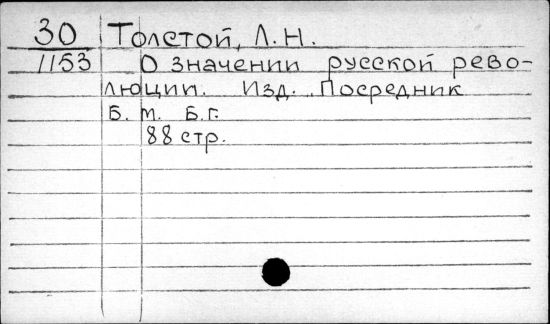 30 Толстой, Л.Н.
1153 О значении русской рево-
люции. Изд. Посредник
Б. м. Б.г.
88 стр.